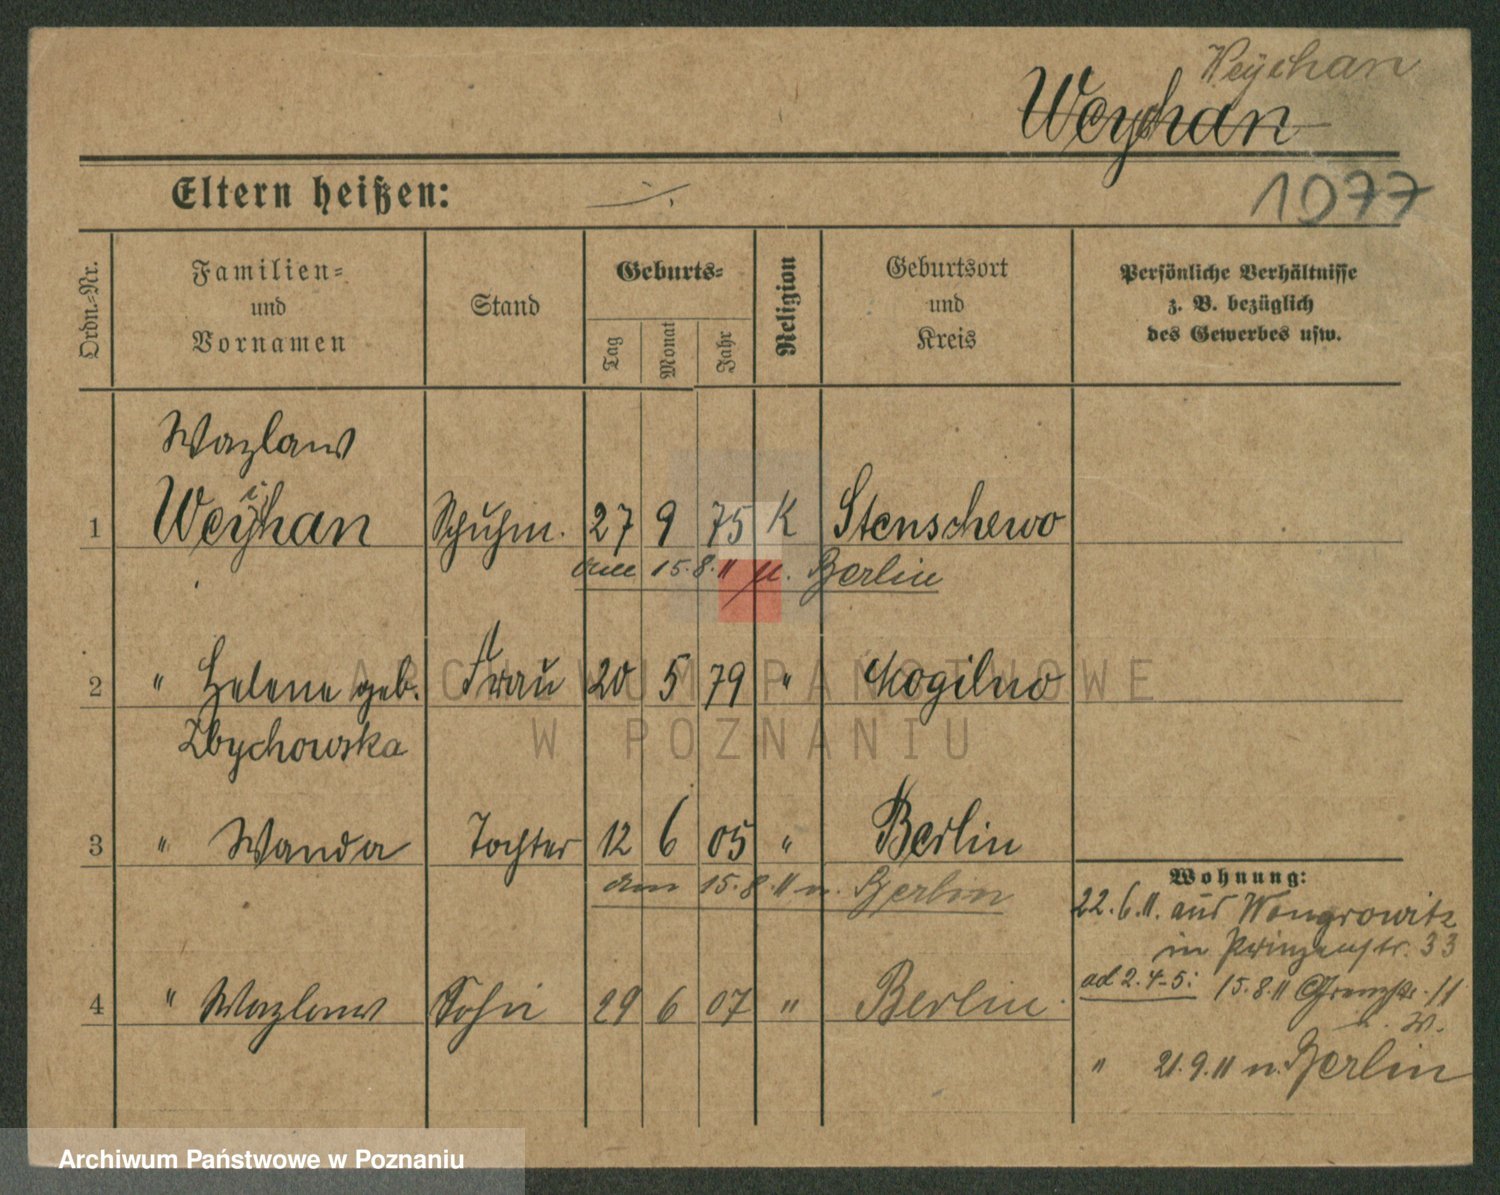 Weychan
Weychan
1077
Eltern heißen: ./.
Ordn.-Nr.
Familien-
und
Vornamen
Stand
Geburts-
Tag
Monat
Jahr
Religion
Geburtsort
und
Kreis
Persönliche Verhältnisse
z. B. bezüglich
des Gewerbes usw.
Wazlaw
1 Weyhan Schuhm. 27 9 75 K Stenschewo
15.8.11 n. Berlin
2 " Helene geb. Frau 20 5 79 " Mogilno
Zbychowska
3 " Wanda Tochter 12 6 05 " Berlin
15.8.11 n. Berlin
4 " Wazlaw Sohn 29 6 07 " Berlin
Wohnung:
22.6.11. aus Wongrowitz
in Prinzenstr. 33
ad 2.4-5: 15.8.11 Grenzstr. 11
" 21.9.11 n. Berlin
ARCHIWUM PAŃSTWOWE
W POZNANIU
Archiwum Państwowe w Poznaniu